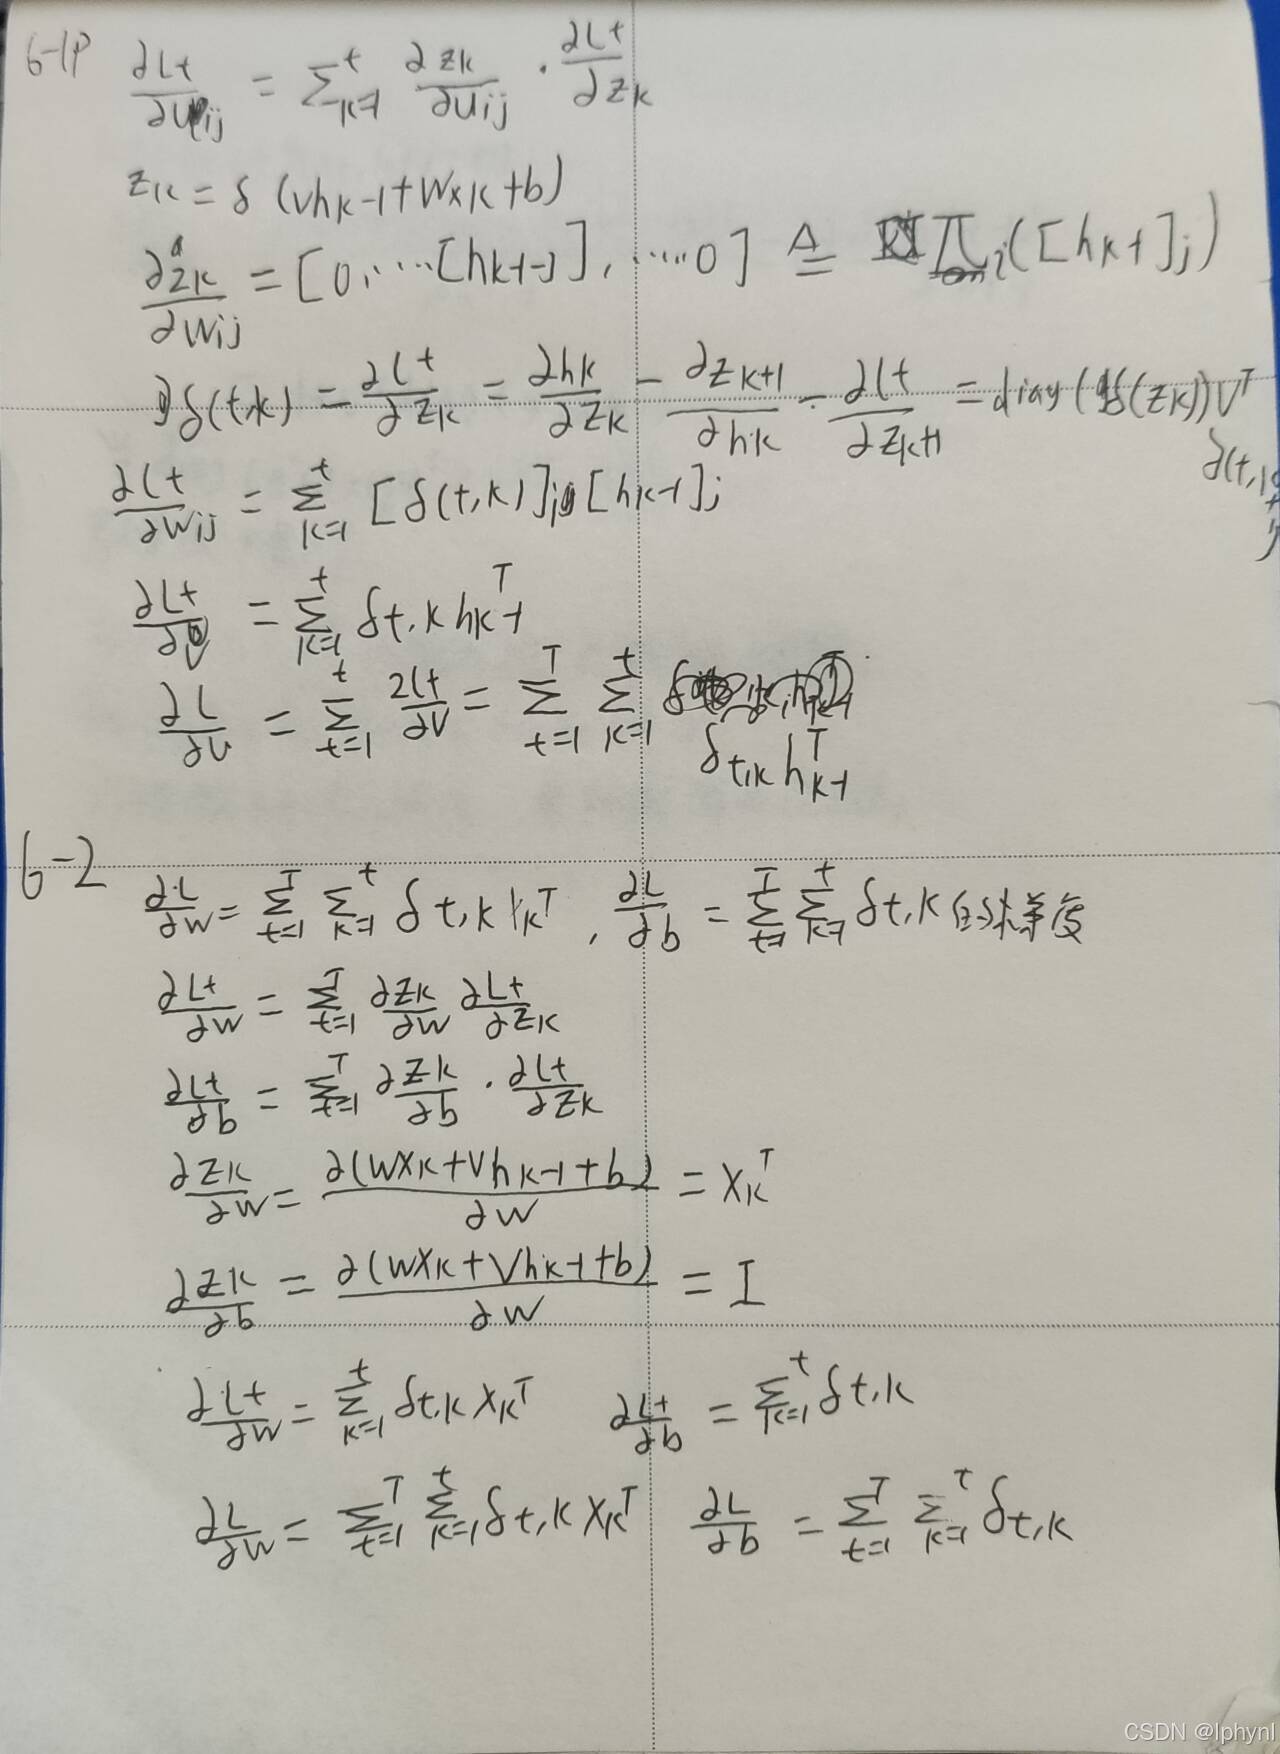 6-1P ∂Lt/∂Uij = Σ_{k=1}^t ∂zk/∂Uij · ∂Lt/∂zk
zk = δ(Vhk-1+Wxk+b)
∂zk/∂wij = [0,....[hk-1-j],.....0] ≜ Π_i([hk-1]j)
δ(t,k) = ∂Lt/∂zk = ∂hk/∂zk - ∂zk+1/∂hk - ∂Lt/∂zk+1 = diag(f(zk))V^T δ(t,k+1)
∂Lt/∂wij = Σ_{k=1}^t [δ(t,k)]i [hk-1]j
∂Lt/∂V = Σ_{k=1}^t δt,k hk-1^T
∂L/∂V = Σ_{t=1}^t ∂Lt/∂V = Σ_{t=1}^T Σ_{k=1}^t
δt,k hk-1^T
6-2
∂L/∂w = Σ_{t=1}^T Σ_{k=1}^t δt,k xk^T, ∂L/∂b = Σ_{t=1}^T Σ_{k=1}^t δt,k 的梯度
∂Lt/∂w = Σ_{t=1}^T ∂zk/∂w ∂Lt/∂zk
∂Lt/∂b = Σ_{t=1}^T ∂zk/∂b · ∂Lt/∂zk
∂zk/∂w = ∂(wxk+Vhk-1+b)/∂w = xk^T
∂zk/∂b = ∂(wxk+Vhk-1+b)/∂w = I
∂Lt/∂w = Σ_{k=1}^t δt,k xk^T ∂Lt/∂b = Σ_{k=1}^t δt,k
∂L/∂w = Σ_{t=1}^T Σ_{k=1}^t δt,k xk^T ∂L/∂b = Σ_{t=1}^T Σ_{k=1}^t δt,k
CSDN @lphynl